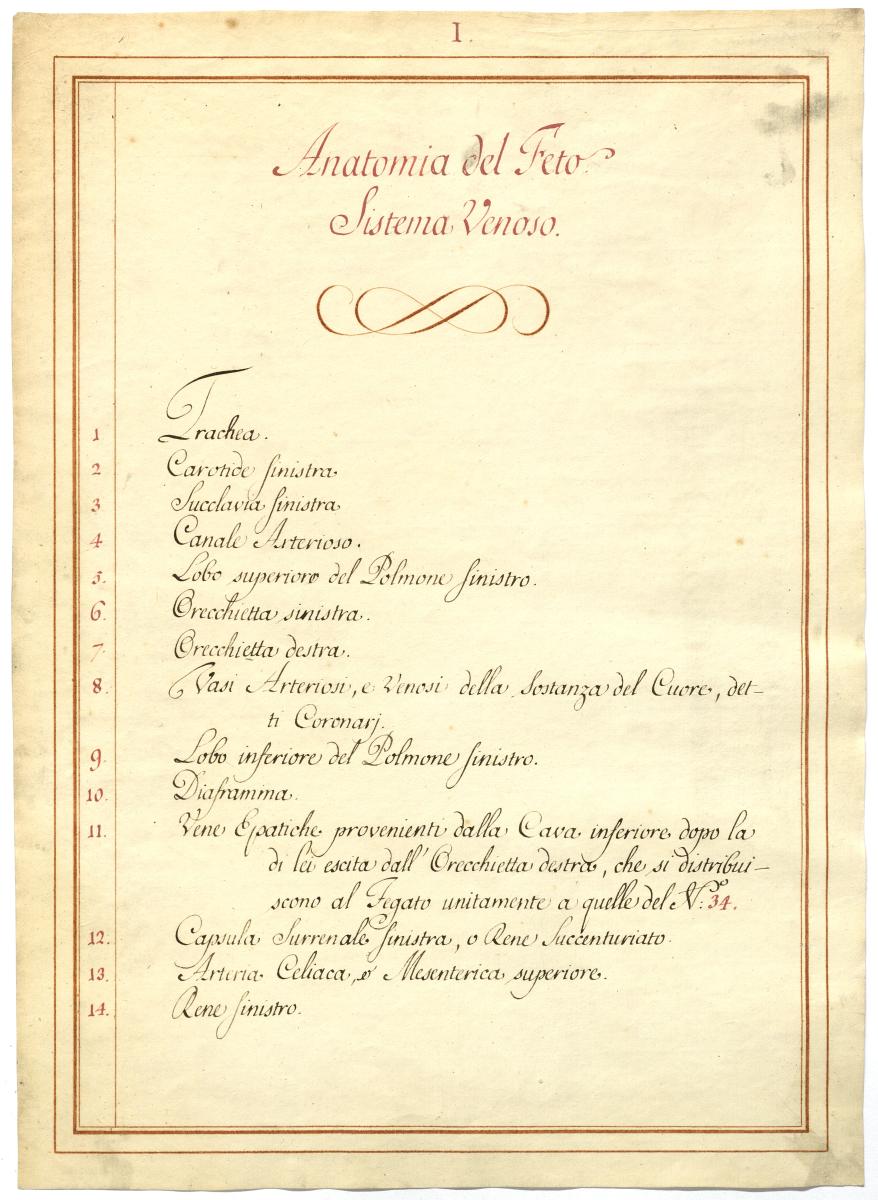 I.
Anatomia del Feto.
Sistema Venoso.
1 Trachea.
2 Carotide sinistra
3 Succlavia sinistra
4 Canale Arterioso.
5. Lobo superiore del Polmone sinistro.
6. Orecchietta sinistra.
7. Orecchietta destra.
8. Vasi Arteriosi, e Venosi della Sostanza del Cuore, det-
ti Coronarj.
9. Lobo inferiore del Polmone sinistro.
10. Diaframma.
11. Vene Epatiche provenienti dalla Cava inferiore dopo la
di lei escita dall' Orecchietta destra, che si distribui-
scono al Fegato unitamente a quelle del N.º 34.
12. Capsula Surrenale sinistra, o Rene Succenturiato.
13. Arteria Celiaca, e Mesenterica superiore.
14. Rene sinistro.